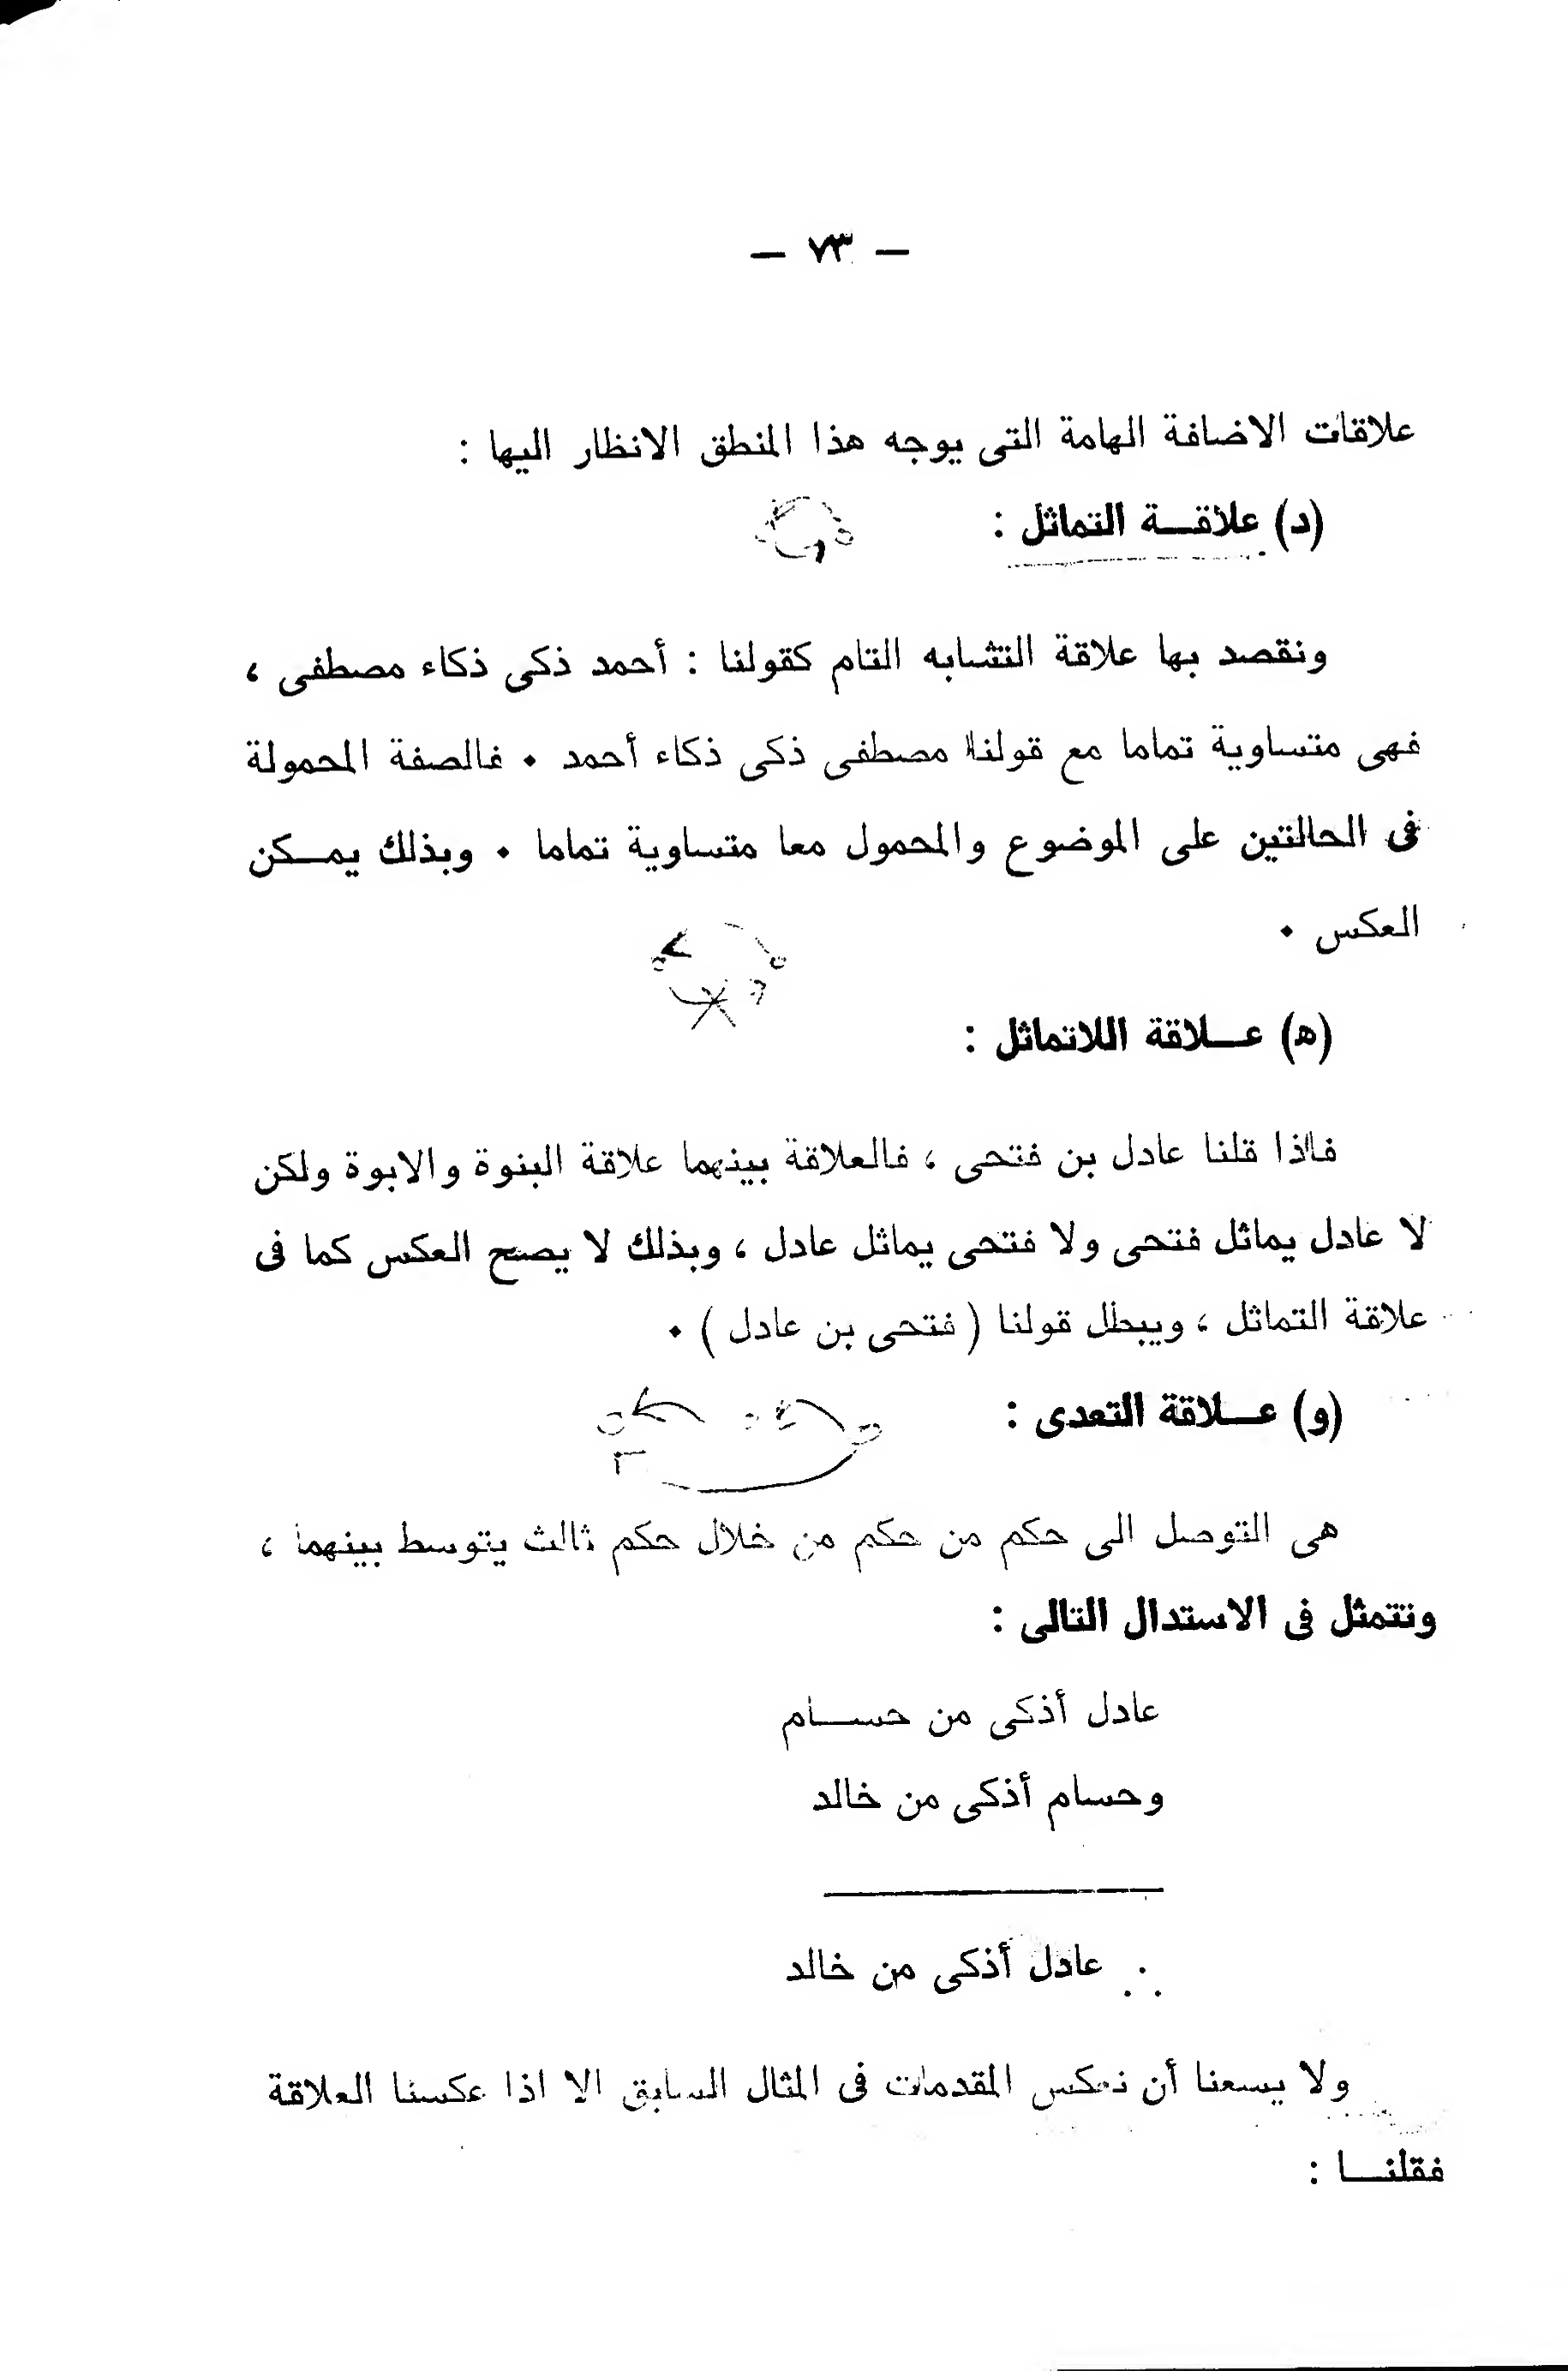 — ٧٣ —
علاقات الاضافة الهامة التى يوجه هذا المنطق الانظار اليها :
(د) علاقـــة التماثل :
ونقصد بها علاقة التشابه التام كقولنا : أحمد ذكى ذكاء مصطفى ،
فهى متساوية تماما مع قولنا مصطفى ذكى ذكاء أحمد ٠ فالصفة المحمولة
فى الحالتين على الموضوع والمحمول معا متساوية تماما ٠ وبذلك يمــكن
العكس ٠
(ه) عـــلاقة اللاتماثل :
فاذا قلنا عادل بن فتحى ، فالعلاقة بينهما علاقة البنوة والابوة ولكن
لا عادل يماثل فتحى ولا فتحى يماثل عادل ، وبذلك لا يصح العكس كما فى
علاقة التماثل ، ويبطل قولنا ( فتحى بن عادل ) ٠
(و) عـــلاقة التعدى :
هى التوصل الى حكم من حكم من خلال حكم ثالث يتوسط بينهما ،
وتتمثل فى الاستدال التالى :
عادل أذكى من حســـام
وحسام أذكى من خالد
∴ عادل أذكى من خالد
ولا يسعنا أن نعكس المقدمات فى المثال السابق الا اذا عكسنا العلاقة
فقلنـــا :